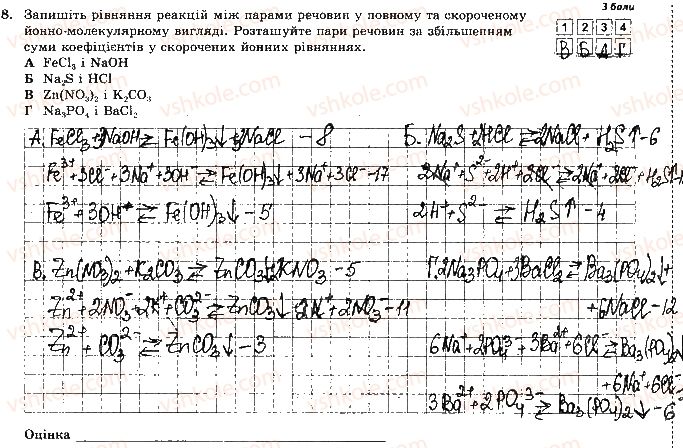 3 бали
8. Запишіть рівняння реакцій між парами речовин у повному та скороченому
йонно-молекулярному вигляді. Розташуйте пари речовин за збільшенням
суми коефіцієнтів у скорочених йонних рівняннях.
1 2 3 4
В Б А Г
А FeCl₃ і NaOH
Б Na₂S і HCl
В Zn(NO₃)₂ і K₂CO₃
Г Na₃PO₄ і BaCl₂
А. FeCl₃ + 3NaOH ⇄ Fe(OH)₃↓ + 3NaCl - 8
Fe³⁺ + 3Cl⁻ + 3Na⁺ + 3OH⁻ ⇄ Fe(OH)₃↓ + 3Na⁺ + 3Cl⁻ - 17
Fe³⁺ + 3OH⁻ ⇄ Fe(OH)₃↓ - 5
Б. Na₂S + 2HCl ⇄ 2NaCl + H₂S↑ - 6
2Na⁺ + S²⁻ + 2H⁺ + 2Cl⁻ ⇄ 2Na⁺ + 2Cl⁻ + H₂S↑
2H⁺ + S²⁻ ⇄ H₂S↑ - 4
В. Zn(NO₃)₂ + K₂CO₃ ⇄ ZnCO₃↓ + 2KNO₃ - 5
Zn²⁺ + 2NO₃⁻ + 2K⁺ + CO₃²⁻ ⇄ ZnCO₃↓ + 2K⁺ + 2NO₃⁻ - 11
Zn²⁺ + CO₃²⁻ ⇄ ZnCO₃↓ - 3
Г. 2Na₃PO₄ + 3BaCl₂ ⇄ Ba₃(PO₄)₂↓ +
+ 6NaCl - 12
6Na⁺ + 2PO₄³⁻ + 3Ba²⁺ + 6Cl⁻ ⇄ Ba₃(PO₄)₂↓
+ 6Na⁺ + 6Cl⁻
3Ba²⁺ + 2PO₄³⁻ ⇄ Ba₃(PO₄)₂↓ - 6
Оцінка
vshkole.com